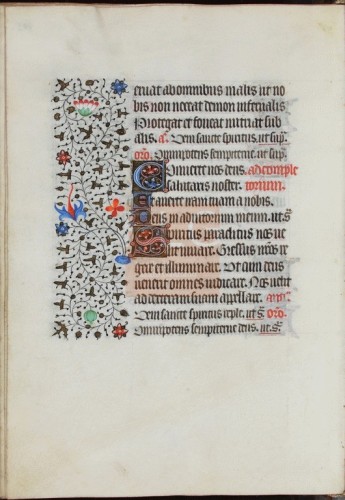 cruat ab omnibus malis ut no
bis non noceat demon infernalis
Protegat et foveat nutriat sub
alis. a. Veni sancte spiritus. ut sup.
oro. Omnipotens sempiterne. ut sup.
Converte nos deus. ad comple
salutaris noster. torium.
Et averte iram tuam a nobis.
Deus in adiutorium meum. ut s.
Spiritus paraclitus nos ve
lit iuvare. Gressus nros re
gat et illuminare. Ut cum deus
venerit omnes iudicare. Nos velit
ad dexteram suam appellare. an.
Veni sancte spiritus reple. ut s. oro.
Omnipotens sempiterne deus. ut s.